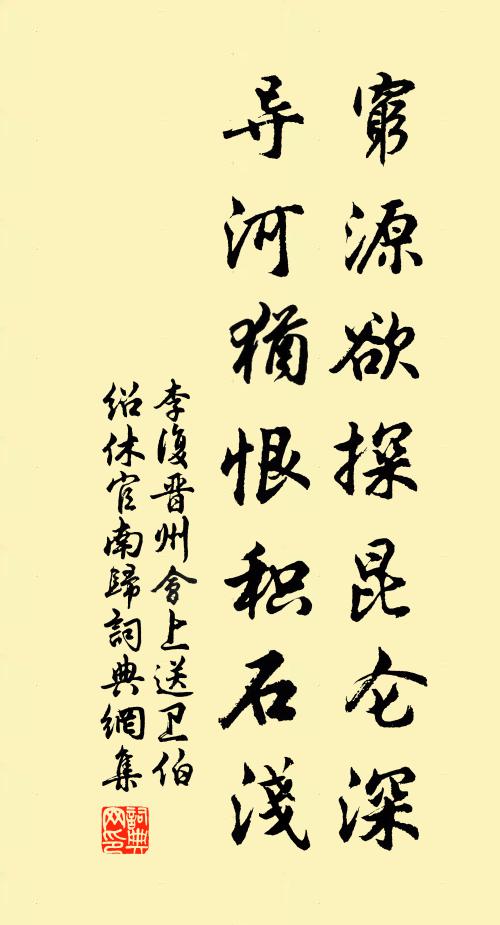 窮源欲探昆仑深
导河猶恨积石淺
李復晋州會上送卫伯
绍休官南歸詞典網集
詞典
网印